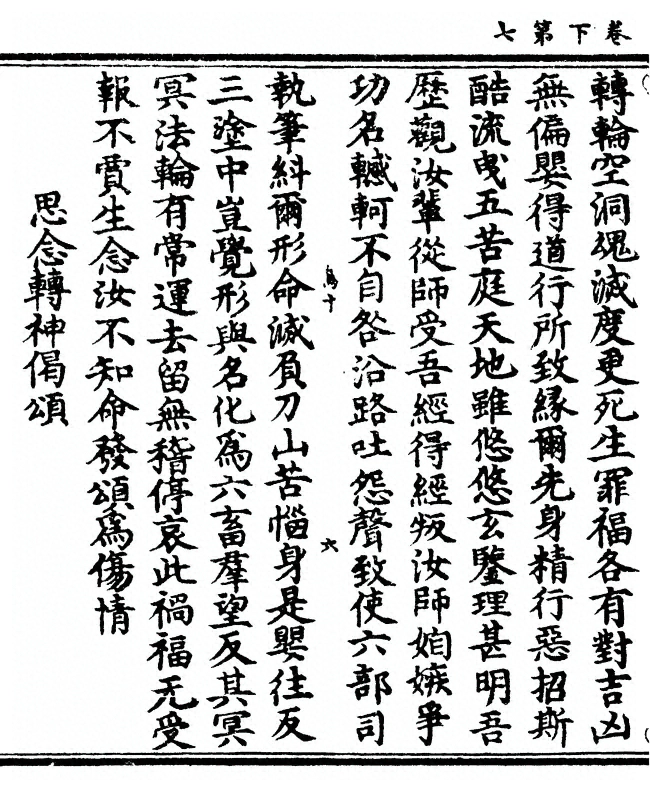 卷下第七
轉輪空洞魂滅度更死生罪福各有對吉凶
無偏嬰得道行所致緣爾先身精行惡招斯
酷流曳五苦庭天地雖悠悠玄鑒理甚明吾
歷觀汝輩從師受吾經得經叛汝師姤嫉爭
功名轗軻不自咎沿路吐怨聲致使六部司
鳥十
六
執筆糾爾形命滅負刀山苦惱身是嬰往反
三塗中豈覺形與名化為六畜羣望反其冥
冥法輪有常運去留無稽停哀此禍福兂受
報不賈生念汝不知命發頌為傷情
思念轉神偈頌